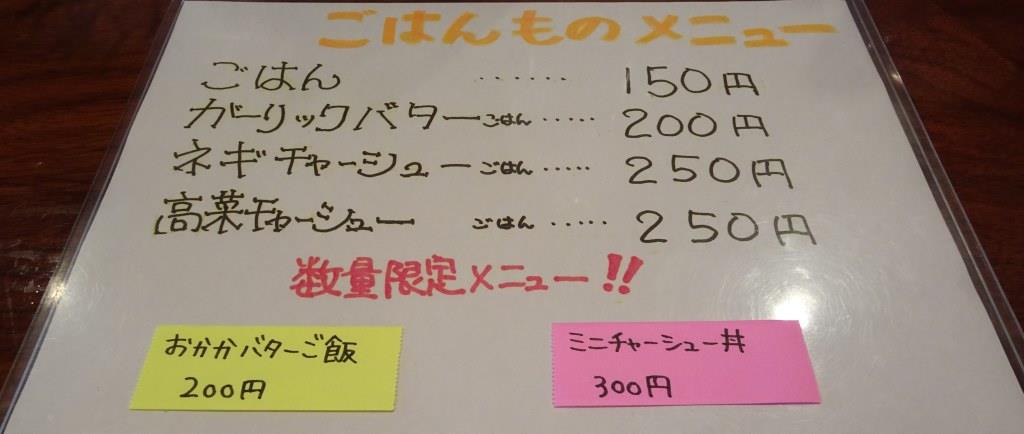 ごはんものメニュー
ごはん ・・・・・・ 150円
ガーリックバターごはん ・・・・・ 200円
ネギチャーシューごはん ・・・・・ 250円
高菜チャーシュー ごはん ・・・・・ 250円
数量限定メニュー!!
おかかバターご飯
200円
ミニチャーシュー丼
300円